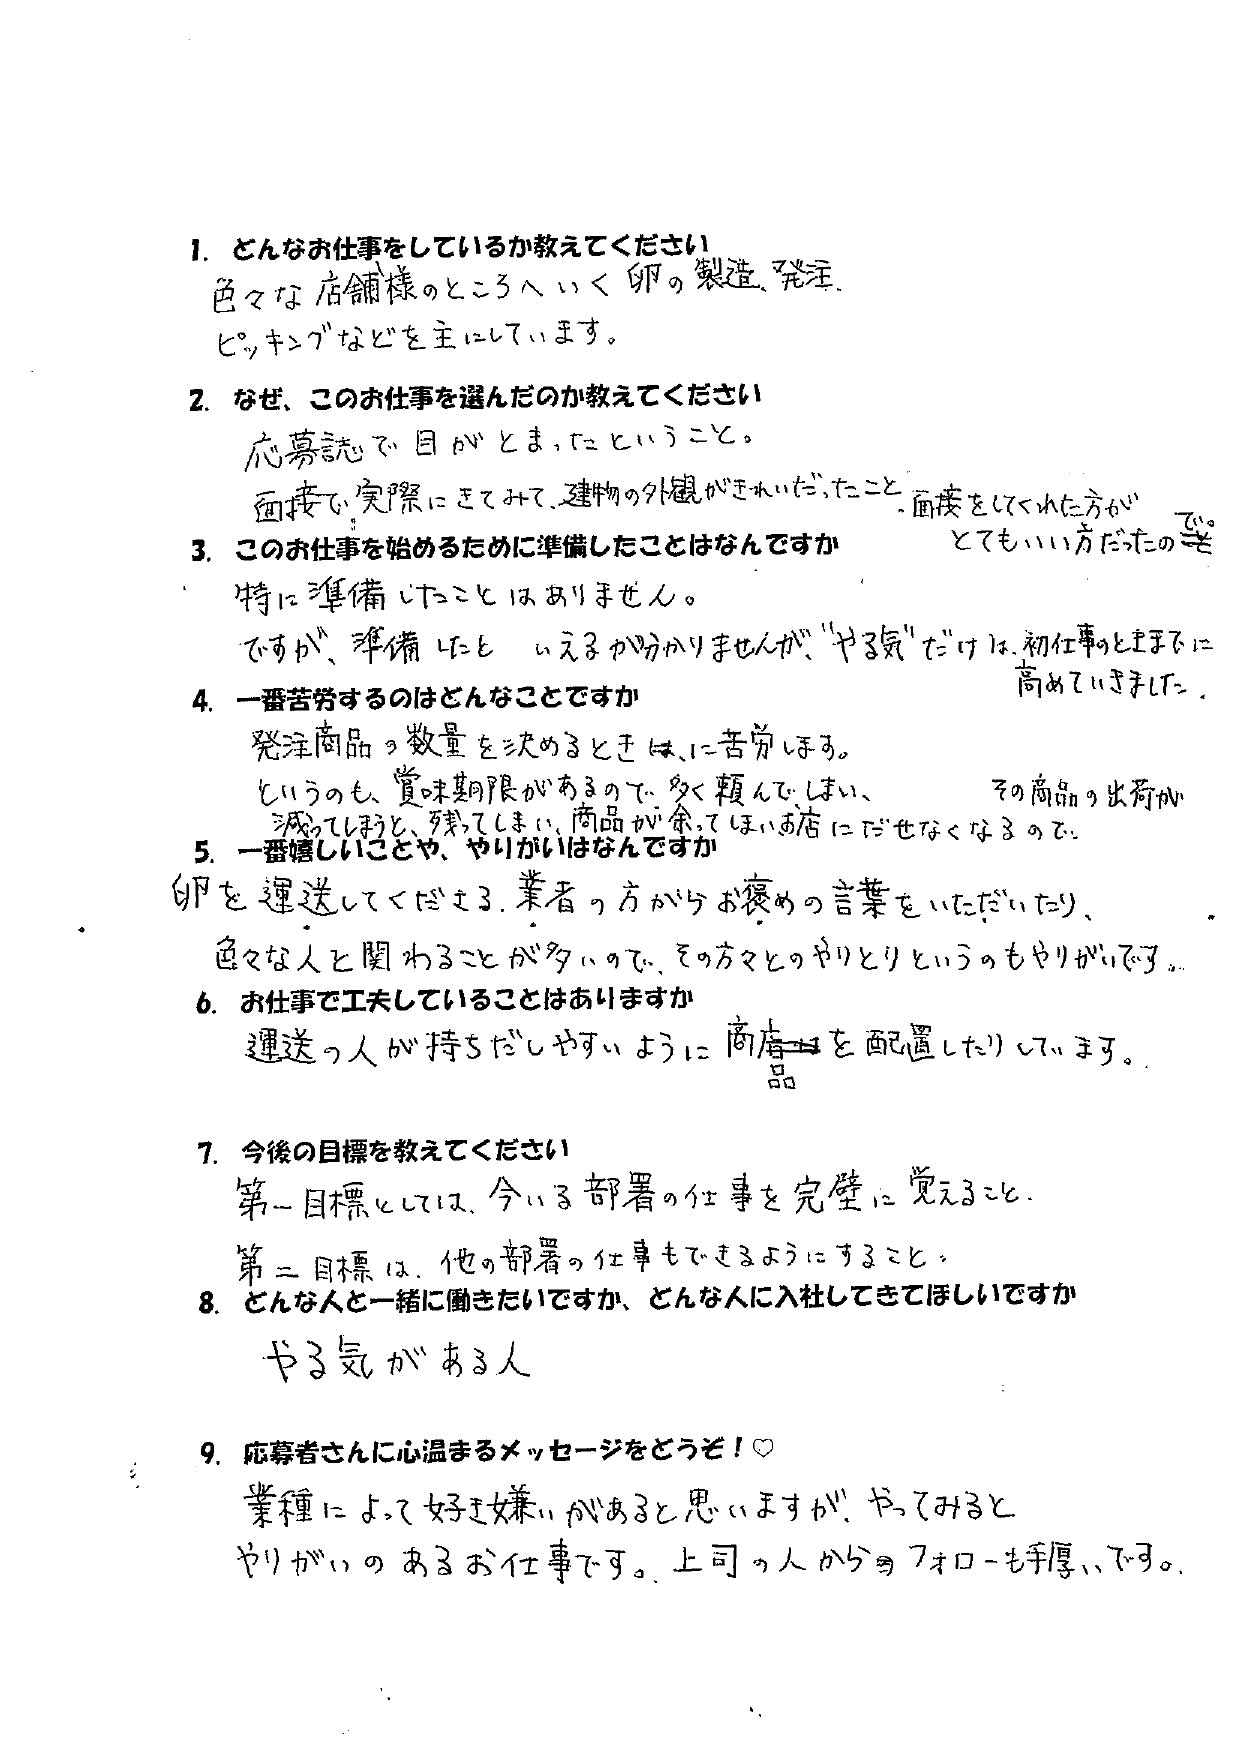 1. どんなお仕事をしているか教えてください
色々な店舗様のところへいく卵の製造、発注、
ピッキングなどを主にしています。
2. なぜ、このお仕事を選んだのか教えてください
応募誌で目がとまったということ。
面接で実際にきてみて、建物の外観がきれいだったこと、面接をしてくれた方が
とてもいい方だったので。
3. このお仕事を始めるために準備したことはなんですか
特に準備したことはありません。
ですが、準備したと いえるか分かりませんが、"やる気"だけは、初仕事のときまでに
高めていきました。
4. 一番苦労するのはどんなことですか
発注商品の数量を決めるときは、に苦労します。
というのも、賞味期限があるので、多く頼んでしまい、 その商品の出荷が
減ってしまうと、残ってしまい、商品が余ってほしいお店にだせなくなるので。
5. 一番嬉しいことや、やりがいはなんですか
卵を運送してくださる、業者の方からお褒めの言葉をいただいたり、
色々な人と関わることが多いので、その方々とのやりとりというのもやりがいです。
6. お仕事で工夫していることはありますか
運送の人が持ちだしやすいように商品を配置したりしています。
7. 今後の目標を教えてください
第一目標としては、今いる部署の仕事を完璧に覚えること。
第二目標は、他の部署の仕事もできるようにすること。
8. どんな人と一緒に働きたいですか、どんな人に入社してきてほしいですか
やる気がある人
9. 応募者さんに心温まるメッセージをどうぞ!♡
業種によって好き嫌いがあると思いますが、やってみると
やりがいのあるお仕事です。上司の人からのフォローも手厚いです。